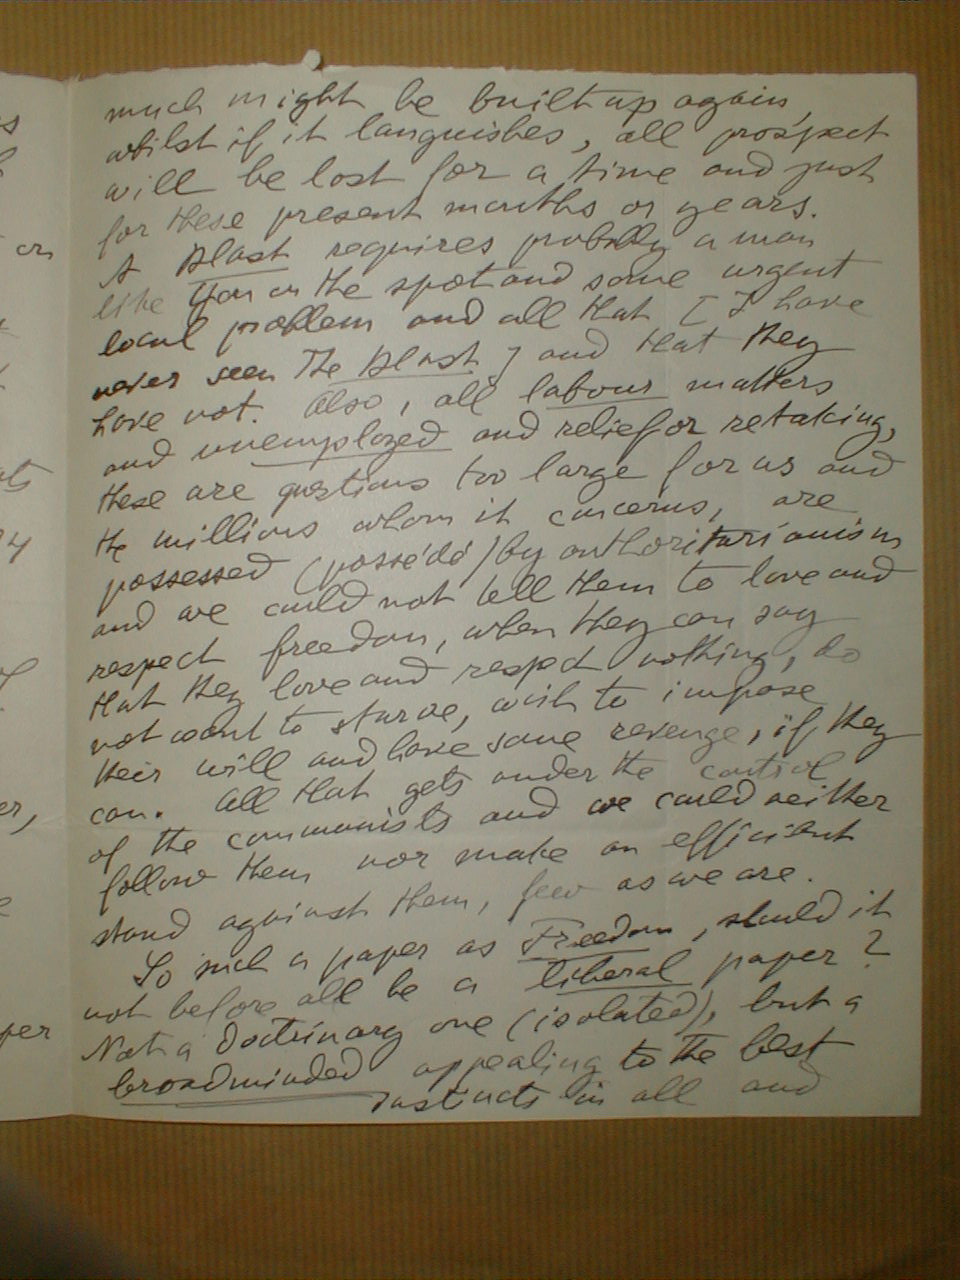 much might be built up again,
whilst if it languishes, all prospect
will be lost for a time and just
for these present months or years.
A Blast requires probably a man
like you on the spot and some urgent
local problem and all that [I have
never seen The Blast] and that they
have not. Also, all labour matters
and unemployed and relief or retaking,
these are questions too large for us and
the millions whom it concerns, are
possessed (possédé) by authoritarianism
and we could not tell them to love and
respect freedom, when they can say
that they love and respect nothing, do
not want to starve, wish to impose
their will and have some revenge, if they
can. All that gets under the control
of the communists and we could neither
follow them nor make an efficient
stand against them, few as we are.
So such a paper as Freedom, should it
not before all be a liberal paper?
Not a doctrinary one (isolated), but a
broadminded appealing to the best
instincts in all and
s
on
ts
24
er,
e
per